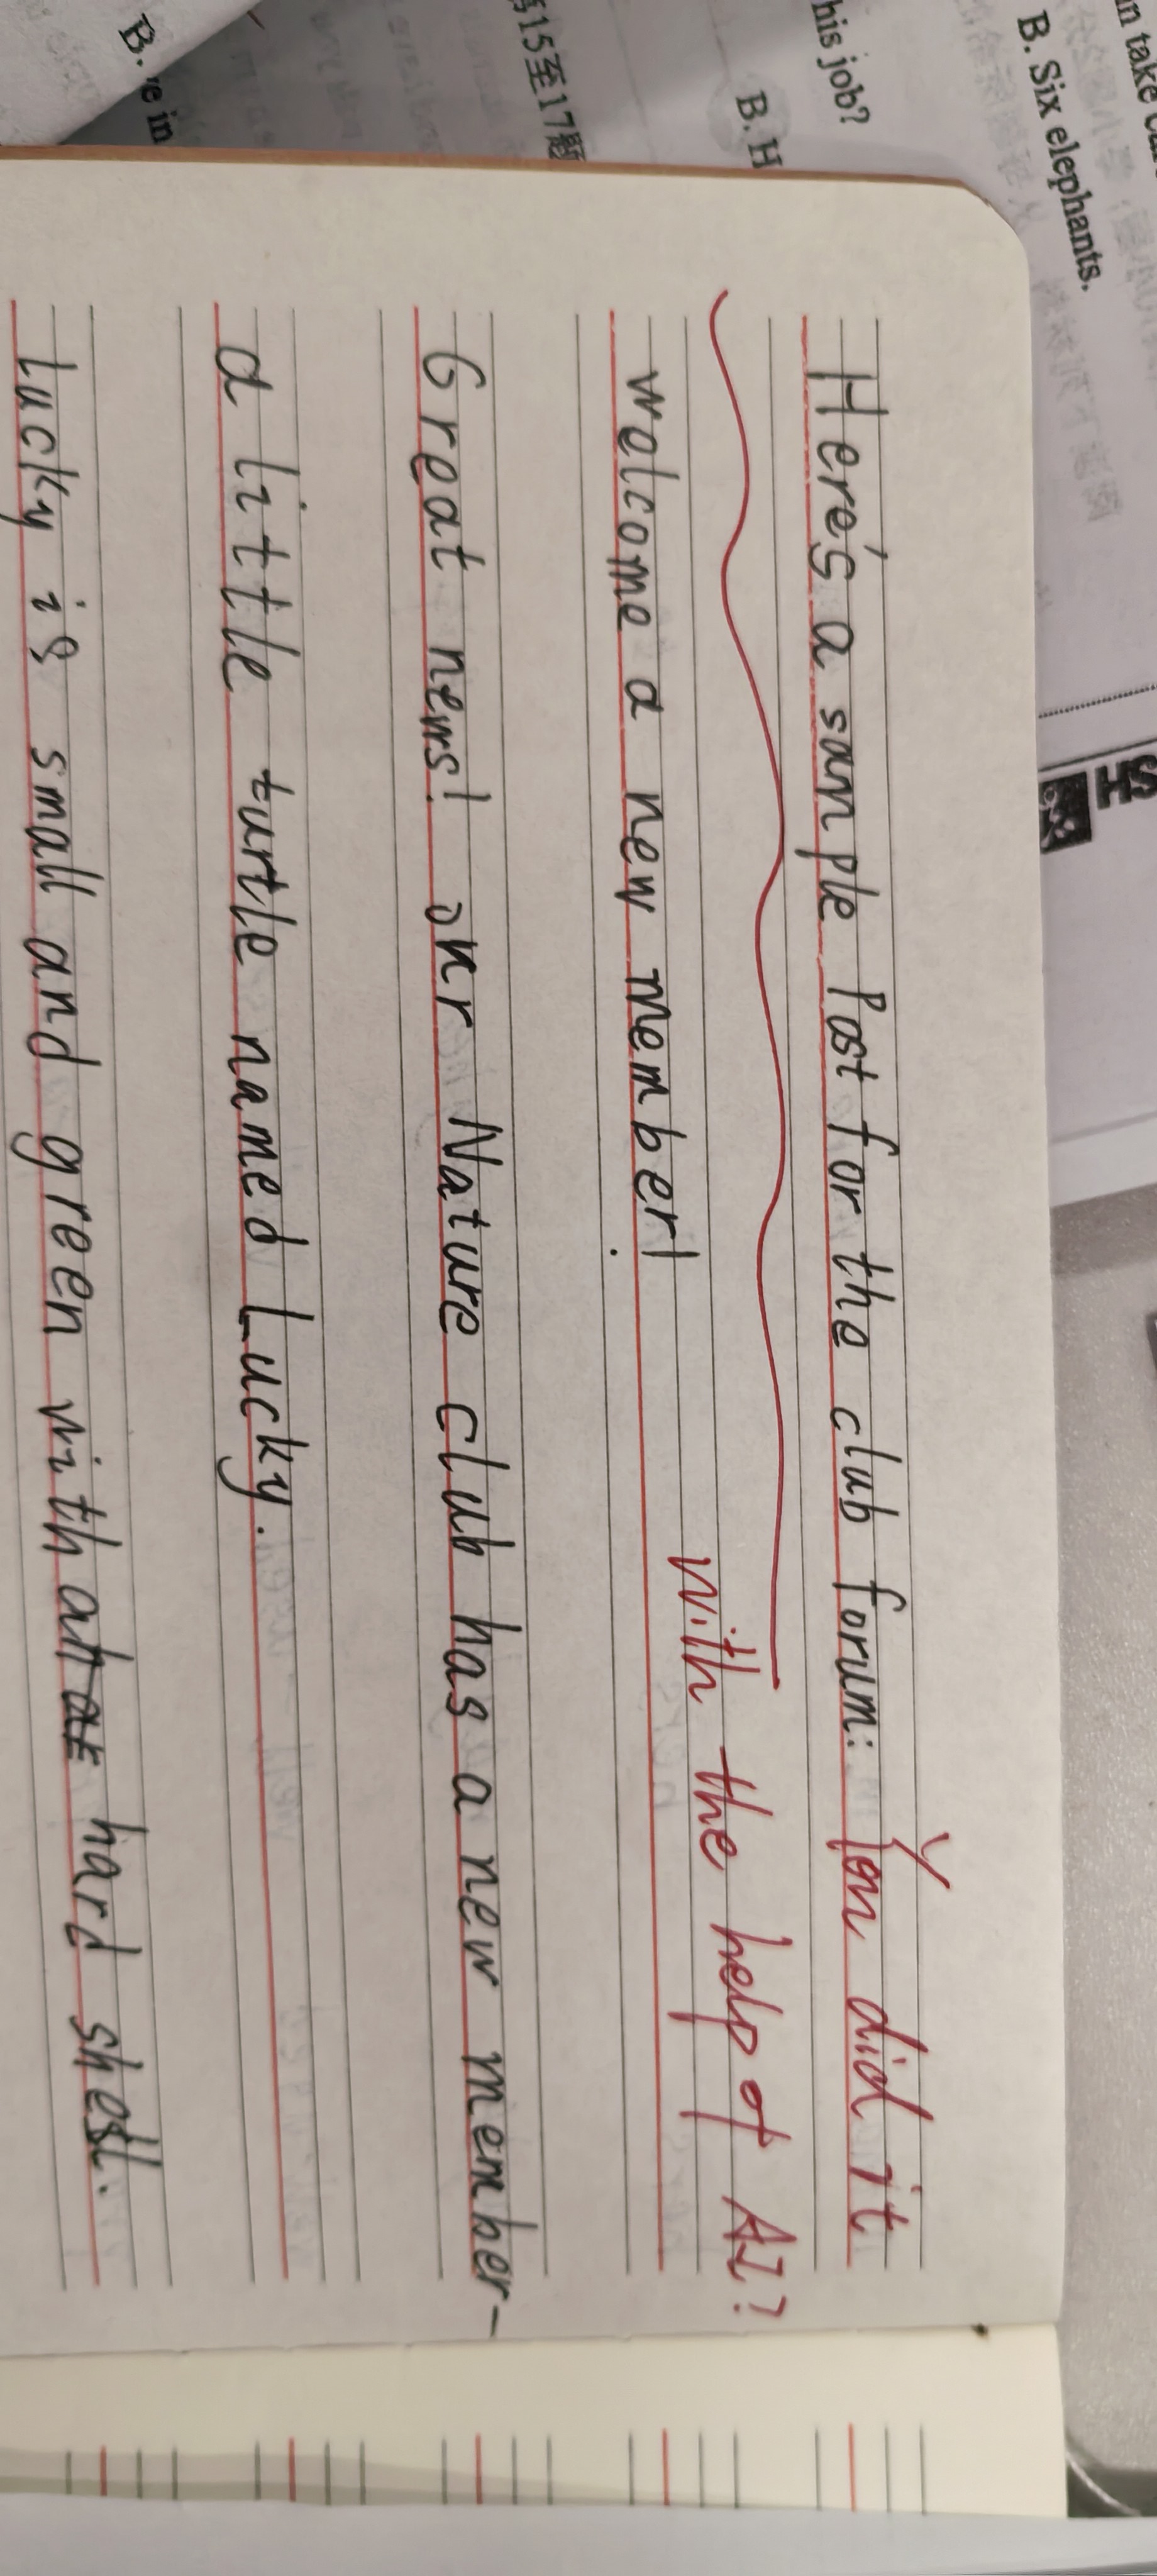 n take
B. Six elephants.
his job?
B. H
15至17题
B.
e in
SH
Here's a sample Post for the club forum: You did it
with the help of AI?
welcome a new member!
Great news! our Nature club has a new member-
a little turtle named Lucky.
Lucky is small and green with a hard shell.